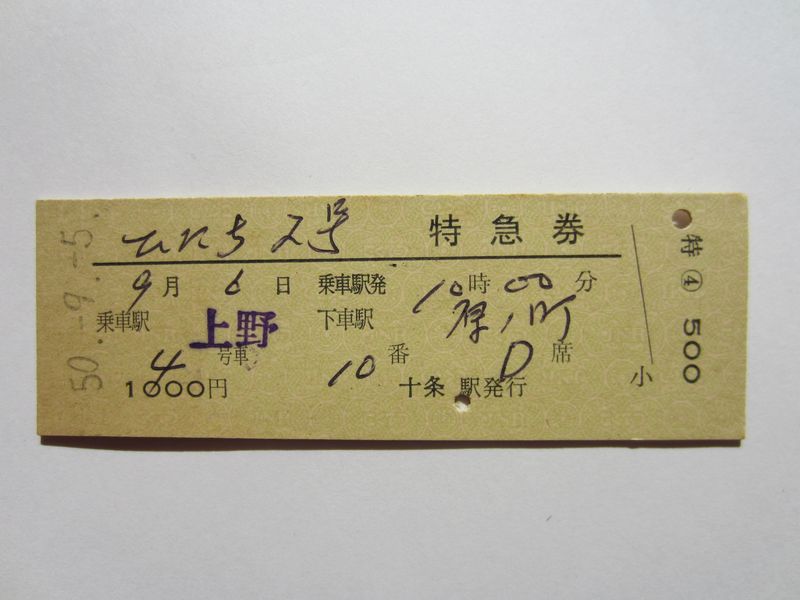 ひたち2号 特急券
9月6日 乗車駅発 10時00分
乗車駅 上野 下車駅 原ノ町
4号車 10番 D席
1000円 十条駅発行
小
特④500
50.-9.-5.